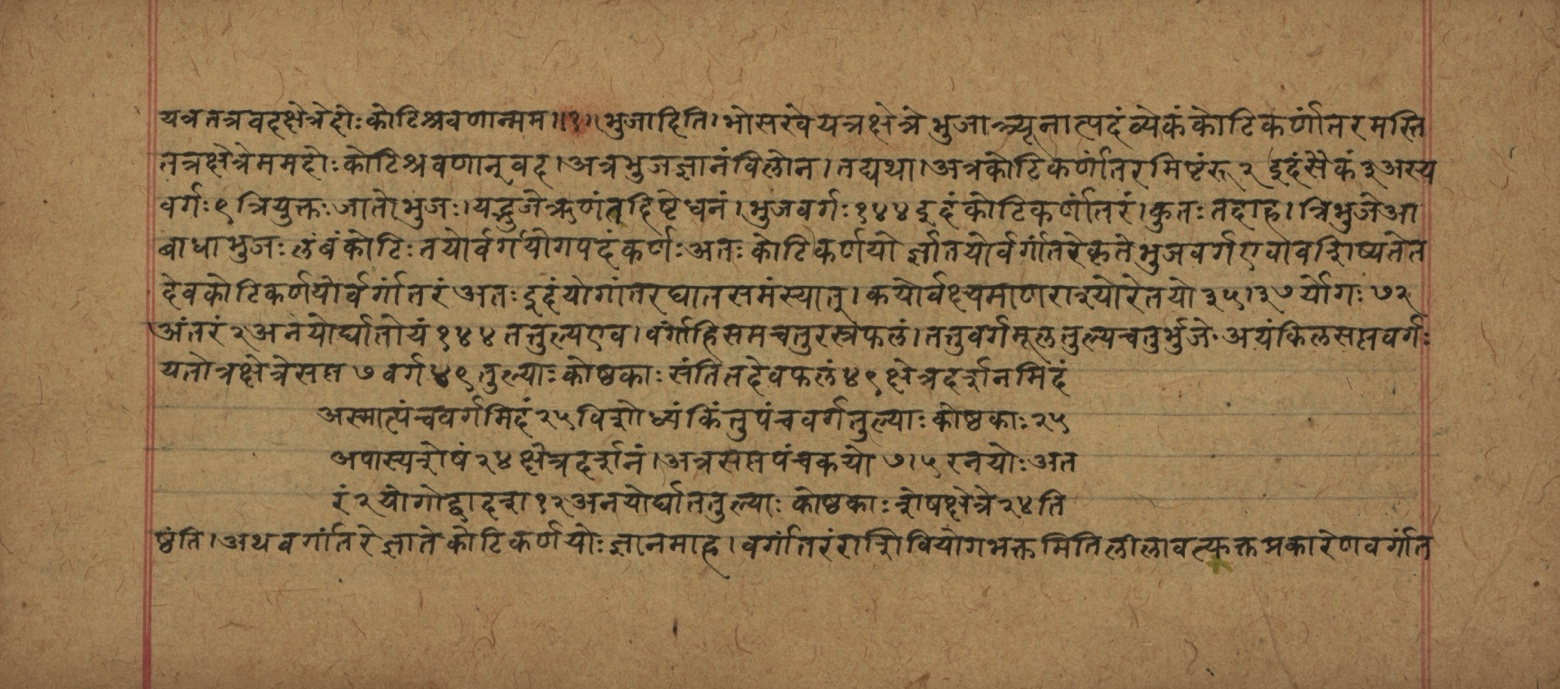 यत्रतत्रवदक्षेत्रेदोःकोटिश्रवणान्मम।।१।।भुजादिति।भोसखेयत्रक्षेत्रेभुजात्त्र्यूनात्पदंव्येकंकोटिकर्णांतरमस्ति
तत्रक्षेत्रेममदोःकोटिश्रवणान्वद।अत्रभुजज्ञानंविलोन।तद्यथा।अत्रकोटिकर्णांतरमिष्टंरू२इदंसैकं३अस्य
वर्गः९त्रियुक्तःजातोभुजः।यद्भुजेऋणंतद्दिष्टेधनं।भुजवर्गः१४४इदंकोटिकर्णांतरं।कुतःतदाह।त्रिभुजेआ
बाधाभुजःलंबंकोटिःतयोर्वर्गयोगपदंकर्णःअतःकोटिकर्णयोर्ज्ञातयोर्वर्गांतरेकृतेभुजवर्गएवावशिष्यतेत
देवकोटिकर्णयोर्वर्गांतरंअतःइदंयोगांतरघातसमंस्यात्।कयोर्वक्ष्यमाणराश्योरेतयो३५।३७र्योगः७२
अंतरं२अनयोर्घातोयं१४४तत्तुल्यएव।वर्गोहिसमचतुरस्रफलं।तत्तुवर्गमूलतुल्यचतुर्भुजेअयंकिलसप्तवर्गः
यतोत्रक्षेत्रेसप्त७वर्ग४९तुल्याःकोष्ठकाःसंतितदेवफलं४९क्षेत्रदर्शनमिदं
अस्मात्पंचवर्गमिदं२५विशोध्यंकिंतुपंचवर्गतुल्याःकोष्ठकाः२५
अपास्यशेषं२४क्षेत्रदर्शनं।अत्रसप्तपंचकयो७।५रनयोःअत
रं२योगोद्वादश१२अनयोर्घाततुल्याःकोष्ठकाःशेषक्षेत्रे२४ति
ष्ठंति।अथवर्गांतरेज्ञातेकोटिकर्णयोःज्ञानमाह।वर्गांतरंराशिवियोगभक्तमितिलीलावत्युक्तप्रकारेणवर्गांत